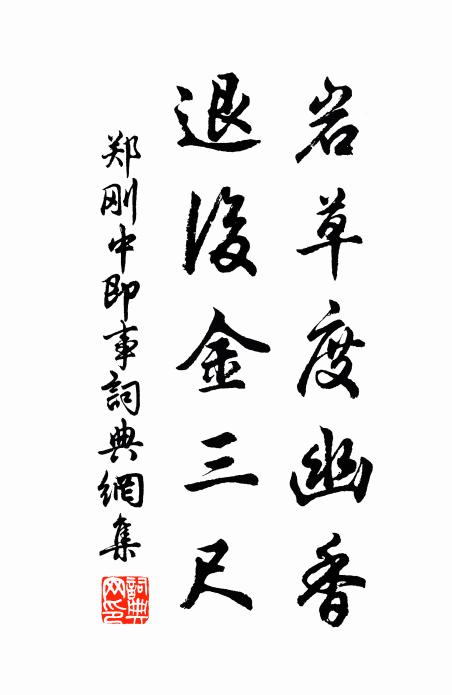 岩草度幽香
退後金三尺
郑刚中即事詞典網集
詞典网印